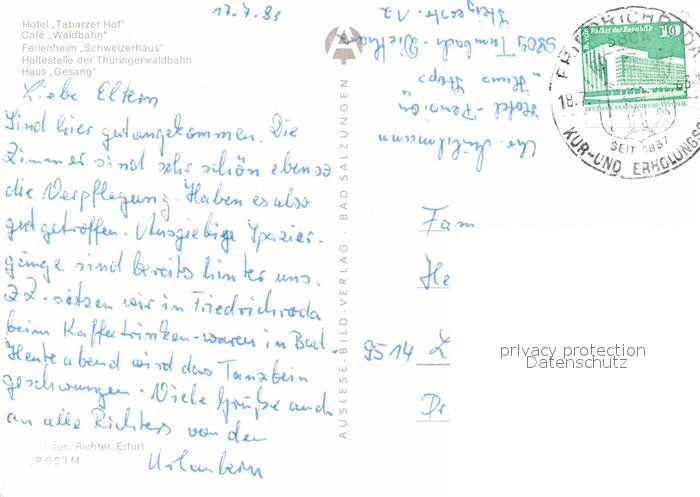 17.7.83
Hotel „Tabarzer Hof"
Café „Waldbahn"
Ferienheim „Schweizerhaus"
Haltestelle der Thüringerwaldbahn
Haus „Gesang"
Liebe Eltern
Sind hier gut angekommen. Die
Zimmer sind sehr schön ebenso
die Verpflegung. Haben es also
gut getroffen. Ausgiebige Spazier-
gänge sind bereits hinter uns.
ZZ. sitzen wir in Friedrichroda
beim Kaffeetrinken - waren in Bad.
Heute abend wird das Tanzbein
geschwungen. Viele Grüße auch
an alle Richters von den
Urlaubern
Fotos: Richter, Erfurt
AUSLESE-BILD-VERLAG · BAD SALZUNGEN
Chr.
Hotel-Pension
"Haus
5809 Tambach-Dietharz
str. 12
Palast der Republik
10
FRIEDRICHRODA
5804
18.7
SEIT 1837
KUR- UND ERHOLUNGSO
Fam
He
9514 L
privacy protection
Datenschutz